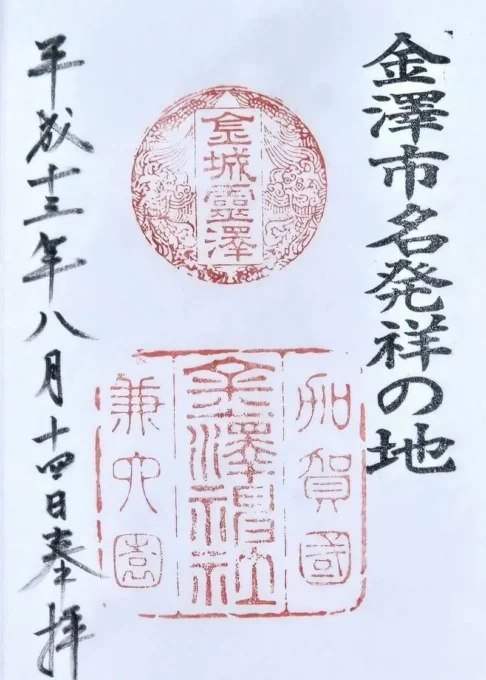 金澤市名発祥の地
金城靈澤
加賀國
金澤神社
兼六園
平成十三年八月十四日奉拝